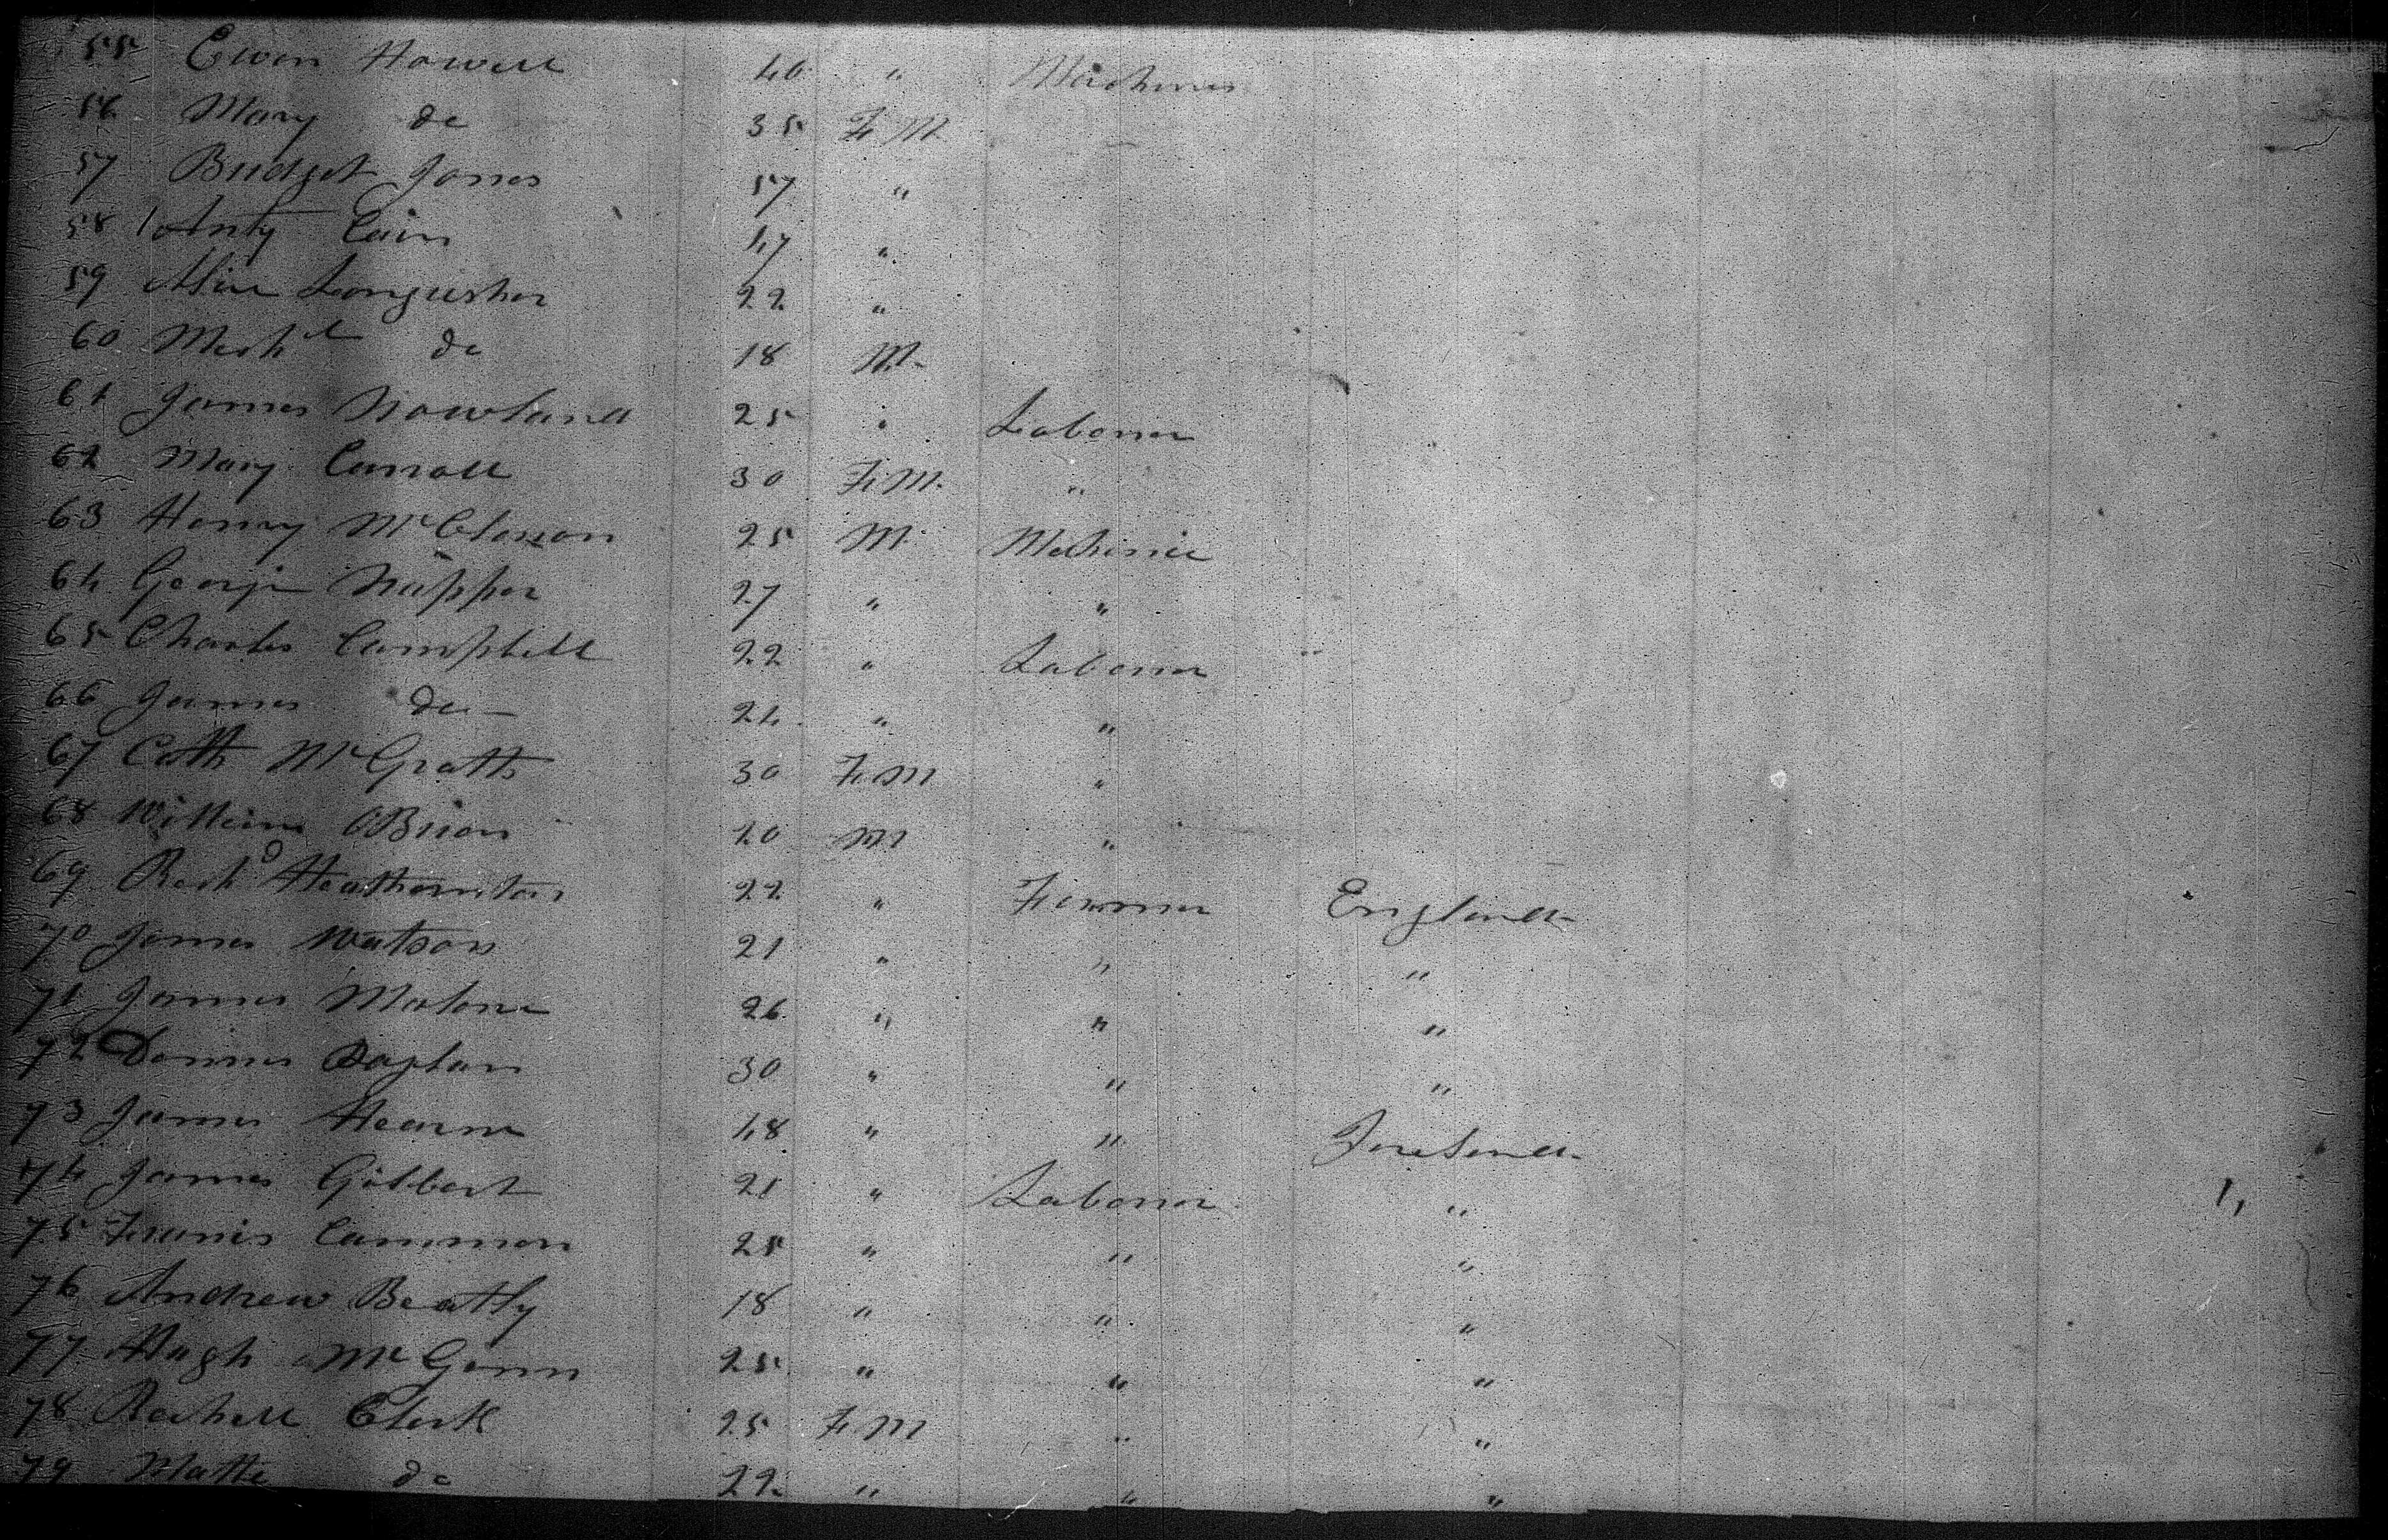 55 Ewen Howell 40 " Mechanic
56 Mary do 35 FM
57 Bridget Jones 57 "
58 Cain 47 "
59 Alice 22 "
60 Mich l do 18 M
61 James Nowland 25 " Laborer
62 Mary Carroll 30 FM "
63 Henry 25 M Mechanic
64 George 27 " "
65 Charles Campbell 22 " Laborer
66 James do 24 " "
67 Cath McGrath 30 FM "
68 William OBrien 20 M "
69 Rich d 22 " Farmer England
70 James Watson 21 " " "
71 James Malone 26 " " "
72 Dennis 30 " " "
73 James Hearne 48 " " Ireland
74 James Gilbert 21 " Laborer "
75 Francis Cammon 25 " " "
76 Andrew Beatty 18 " " "
77 Hugh McGinn 25 " " "
78 Rachell Clerk 25 FM " "
79 Matte do 22 " " "